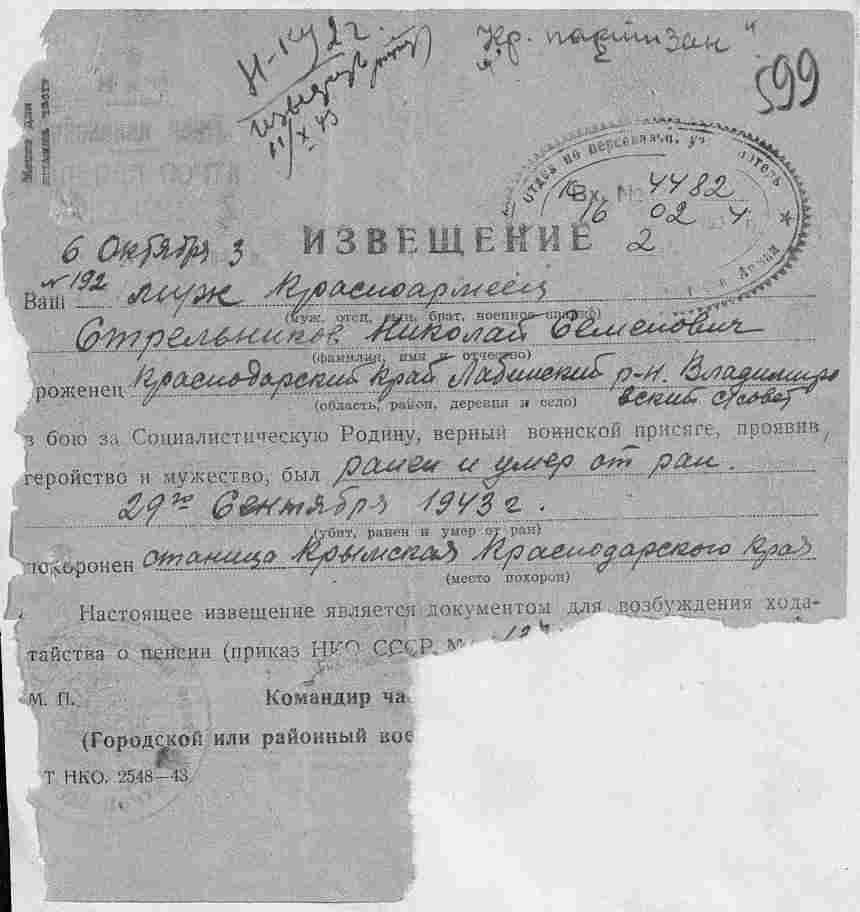 Н-ку 2 г.
извещ
11/X 43
Кр. партизан"
599
Место для
штампа части
отдел по персональн.
Вх. № 4482
16 02 4
2
6 Октября 3
ИЗВЕЩЕНИЕ
№ 192
Ваш муж Красноармеец
(муж, отец, сын, брат, военное звание)
Стрельников Николай Семенович
(фамилия, имя и отчество)
роженец Краснодарский край Лабинский р-н. Владимиро
(область, район, деревня и село) вский с/совет
в бою за Социалистическую Родину, верный воинской присяге, проявив
геройство и мужество, был ранен и умер от ран.
29го Сентября 1943 г.
(убит, ранен и умер от ран)
похоронен станица Крымская Краснодарского края
(место похорон)
Настоящее извещение является документом для возбуждения хода-
тайства о пенсии (приказ НКО СССР №
М. П.
Командир ча
(Городской или районный вое
Т НКО. 2548—43